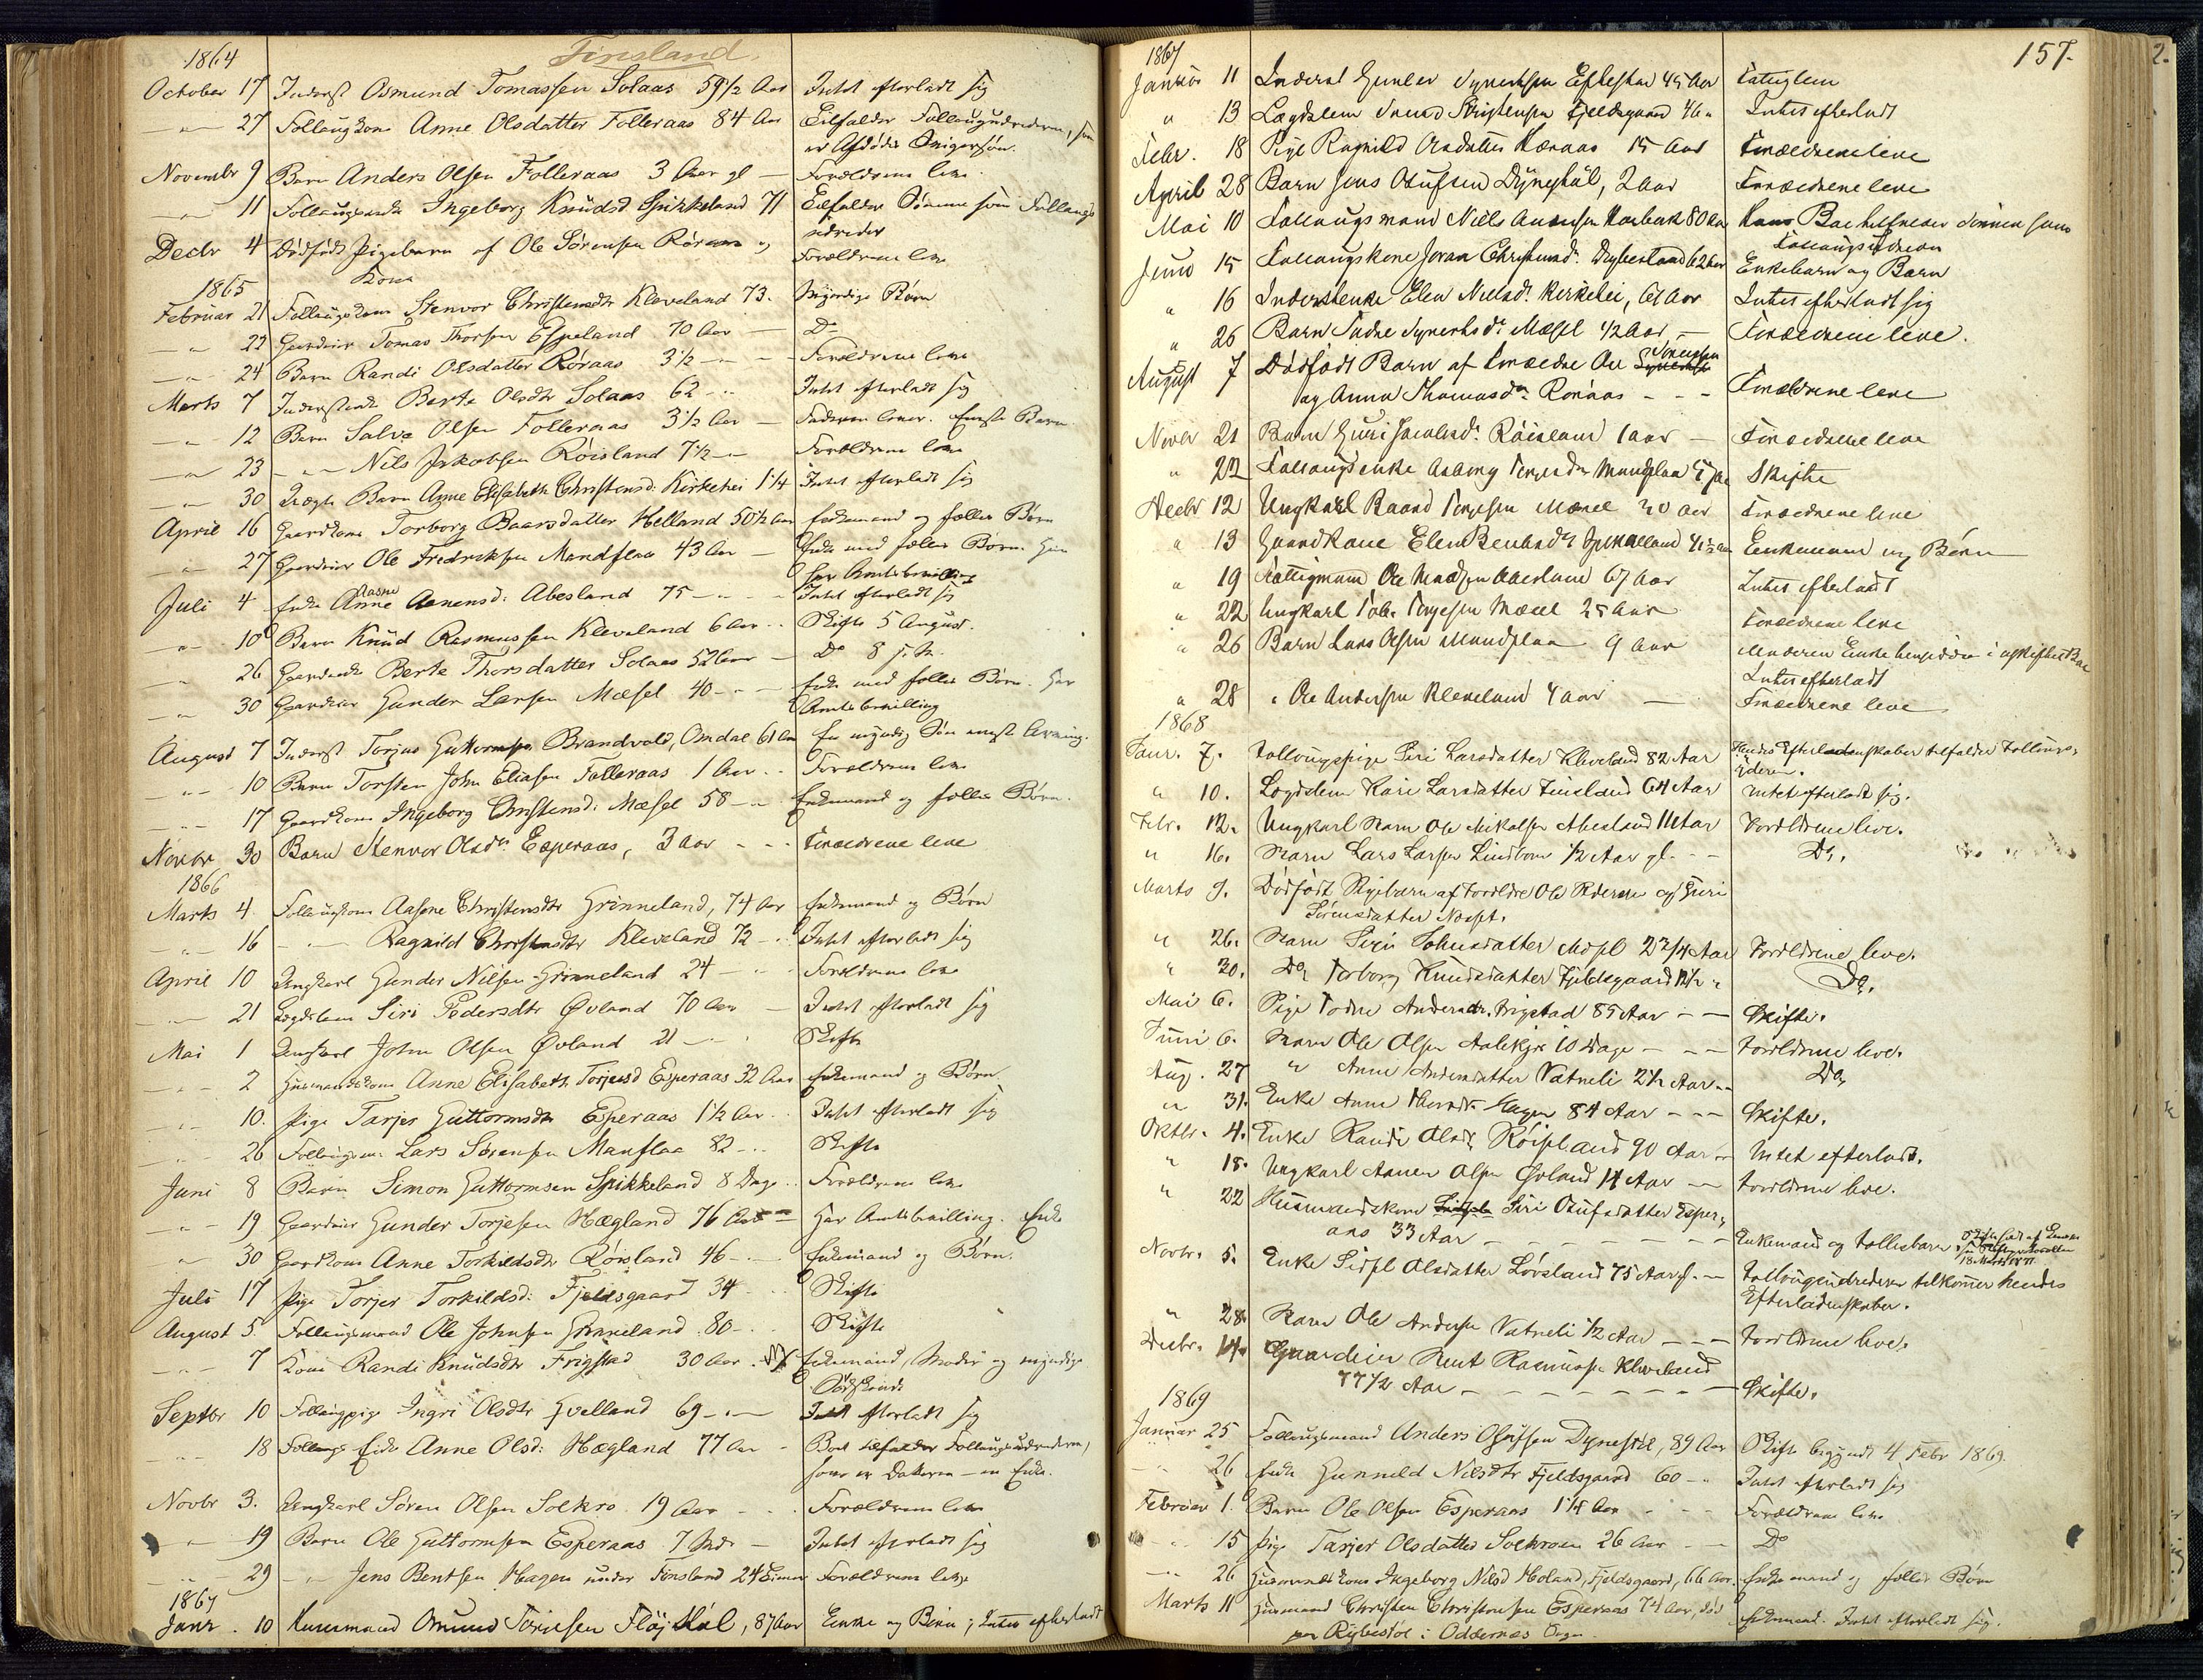 Finsland.
1864
October 17 Inderst Osmund Tomassen Solaas 59 1/2 Aar Intet efterladt sig
" 27 Follaugskone Anne Olsdatter Folleraas 84 Aar Tilfalder Follaugsudrederen, som
er Afdødes Svigersøn.
Novembr 9 Barn Anders Olsen Folleraas 3 Aar gl — Forældrene leve.
" 11 Follaugsenke Ingeborg Knudsd Spikkeland 71 Tilfalder Sønnen som Follaugs
udreder
Decbr 4 Dødfødt Pigebarn af Ole Sørensen Røraas og Forældrene leve
Kone
1865
Februar 21 Follaugskone Stenvor Christensdtr Kleveland 73. Myndige Børn
" 22 Gaardeier Tomas Thorsen Espeland 70 Aar — Do
" 24 Barn Randi Olsdatter Røraas 3 1/2 — Forældrene leve
Marts 7 Inderstenke Berte Olsdtr Solaas 62 " Intet efterladt sig
" 12 Barn Salve Olsen Folleraas 3 1/2 Aar — Faderen lever. Eneste Barn
" 23 " Nils Jakobsen Røisland 7 1/2 " Forældrene leve
" 30 Barn Anne Elisabeth Christensd: Kirkehei 1 1/4 Intet efterladt sig
April 16 Gaardkone Torborg Baarsdatter Helland 50 1/2 Aar Enkemand og fælles Børn
" 27 Gaardeier Ole Fredriksen Mandflaa 43 Aar — Enke med fælles Børn. Hun
har Amtsbevilling
Juli 4 Enke Anne Aasne Aanensd: Abesland 75 " Intet efterladt sig
" 10 Barn Knud Rasmussen Kleveland 6 Aar " Skifte 5 August.
" 26 Gaardenke Berte Thorsdatter Solaas 52 Aar — Do 8
" 30 Gaardeier Gunder Larsen Mæsel 40 " Enke med fælles Børn. Har
Amtsbevilling
August 7 Inderst Torjus Guttormsen Brandvold, Omdal 61 Aar En myndig Søn eneste Arving.
" 10 Barn Torsten John Eliasen Folleraas 1 Aar " Forældrene leve
" 17 Gaardkone Ingeborg Christensd: Mæsel 58 " Enkemand og fælles Børn.
Novbr 30 Barn Stenvor Olsdtr Esperaas, 3 Aar Forældrene leve
1866
Marts 4 Follaugskone Aasne Christensdtr Grinneland, 74 Aar Enkemand og Børn
" 16 " Ragnild Christensdtr Kleveland 72 " Intet efterladt sig
April 10 Ungkarl Gunder Nilsen Grinneland 24 " Forældrene leve
" 21 Lægdslem Siri Pedersdtr Øvland 70 Aar — Intet efterladt sig
Mai 1 Ungkarl John Olsen Øvland 21 " Skifte
" 2 Huusmandskone Anne Elisabeth Torjusd Esperaas 32 Aar Enkemand og Børn.
" 10. Pige Tarjer Guttormsdtr Esperaas 1 1/2 Aar " Intet efterladt sig
" 26 Follaugsm. Lars Sørensen Manflaa 82 " Skifte
Juni 8 Barn Simon Guttormsen Spikkeland 8 Dage " Forældrene leve
" 19 Gaardeier Gunder Torjesen Hægland 76 Aar — Har Amtsbevilling. Enke
" 30 Gaardkone Anne Torkildsdtr Røisland 46 " Enkemand og Børn.
Juli 17 Pige Torjer Torkildsd: Fjeldsgaard 34 " Skifte
August 5. Follaugsmand Ole Johnsen Grinneland 80 " Skifte
" 7 Kone Randi Knudsdtr Frigstad 30 Aar. Enkemand, Moder og myndige
Sødskende
Septbr 10 Follaugspige Ingri Olsdtr Hvelland 69 " Intet efterladt sig
" 18 Follaugs Enke Anne Olsd: Hægland 77 Aar - Boet tilfalder Follaugsudrederen,
som er Datteren — en Enke.
Novbr 3. Ungkarl Søren Olsen Solkro 19 Aar Forældrene leve
" 19 Barn Ole Guttormsen Esperaas 7 Mdr — Intet efterladt sig
" 29 " Jens Bentsen Hagen under Finsland 24 Timer Forældrene leve
1867
Janr. 10 Huusmand Omund Fløistøl, 87 Aar Enke og Børn; Intet efterladt
157.
1867
Januar 11 Inderst Gunder Synertsen Eftestad 45 Aar Fattiglem
" 13 Lægdslem Svend Christensen Fjeldsgaard 46 " Intet efterladt
Febr. 18 Pige Ragnild Olsdatter Røraas 15 Aar Forældrene leve
April 28 Barn Jens Olufsen Dynestøl, 2 Aar Forældrene leve
Mai 10 Follaugsmand Niels Aanensen 80 Aar Hans Boe tilfalder Sønnen som
Follaugsudreder
Juni 15 Follaugskone Joran Christensd: 62 Aar Enkebarn og Børn
" 16 Inderstenke Elen Nielsd: Kirkehei, 61 Aar Intet efterladt sig
" 26 Barn Tudne Synertsdr Mæsel 1/2 Aar, — Forældrene leve.
August 7 Dødfødt Barn af Forældre Ole Sørensen
og Anna Thomasdr Røraas - - - Forældrene leve
Novbr 21 Barn Guri Jacobsd: Røisland 1 Aar — Forældrene leve
" 22 Follaugsenke Aasborg Mandflaa Skifte
Decbr 12 Ungkarl Baard Torjesen Mæsel 30 Aar Forældrene leve
" 13 Gaardkone Elen Bentsdr 41 1/2 Aar Enkemand og Børn
" 19 Fattigmand Ole Madsen Abesland 67 Aar Intet efterladt
" 22 Ungkarl Tobi: Torjesen Mæsel 25 Aar Forældrene leve
" 26 Barn Lars Olsen Mandflaa 9 Aar Moderen Enke hensidder i uskiftet Boe
Intet efterladt
" 28 " Ole Andersen Kleveland 4 Aar — Forældrene leve
1868
Janr. 7. Follaugspige Siri Larsdatter Kleveland 82 Aar Hendes Efterladenskaber tilfalder Follaugs-
yderen.
" 10. Lægdslem Kari Larsdatter Finsland 64 Aar Intet efterladt sig.
Febr. 12. Ungkarl Barn Ole Mikalsen Abesland 11 Aar Forældrene leve.
" 16. Barn Lars Larsen Lindbom 1/2 Aar gl. - - Do.
Marts 9. Dødfødt Pigebarn af Forældre Ole Pedersen og Guri
Sørensdatter
" 26. Barn Siri Johnsdatter Mæsel 2 3/4 Aar Forældrene leve.
" 30. Do Torborg Knudsdatter Fjeldsgaard 12 1/2 " Do.
Mai 6. Pige Todne Andersdtr. Frigstad 85 Aar - - Skifte.
Juni 6. Barn Ole Olsen Aalekjær 10 Dage - - - Forældrene leve.
Aug. 27 " Anne Andersdatter Vatneli 2 1/2 Aar - - Do.
" 31. Enke Anne Hagen 84 Aar - - - Skifte.
Oktbr. 4. Enke Randi Olsd: Røisland 90 Aar - Intet efterladt.
" 18. Ungkarl Aanen Olsen Øvland 14 Aar - Forældrene leve.
" 22 Huusmandskone Siri Olufsdatter Esper-
aas 33 Aar - - - - - - Enkemand og Fællesbarn
18 Marts
Novbr. 5. Enke Sidsel Olsdatter Løvsland 75 Aar gl. - Follaugsudrederen tilkommer hendes
Efterladenskaber.
" 28. Barn Ole Andersen Vatneli 1/2 Aar - - - Forældrene leve.
Decbr. 14. Gaardeier Knut Rasmussen Kleveland
77 1/2 Aar - - - - - - - Skifte.
1869
Januar 25 Follaugsmand Anders Olufsen Dynestøl, 89 Aar Skifte begyndt 4 Febr 1869.
" 26 Enke Gunneld Nilsdtr Fjeldsgaard 60 " Intet efterladt sig
Februar 1. Barn Ole Olsen Esperaas 1 1/4 Aar Forældrene leve
" 15 Pige Tarjer Olsdatter Solkroen 26 Aar — Do
" 26 Husmandskone Ingeborg Nilsd Moland, Fjeldsgaard, 66 Aar. Enkemand og fælles Børn
Marts 11 Husmand Christen Christensen Esperaas 74 Aar, død Enkemand. Intet efterladt sig.
paa Rybestøl i Oddernes Sogn.